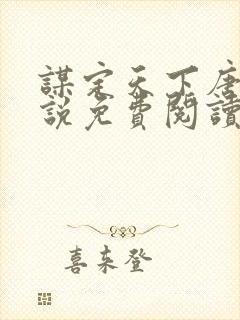 謀定天下唐
說免費閱讀
喜來登